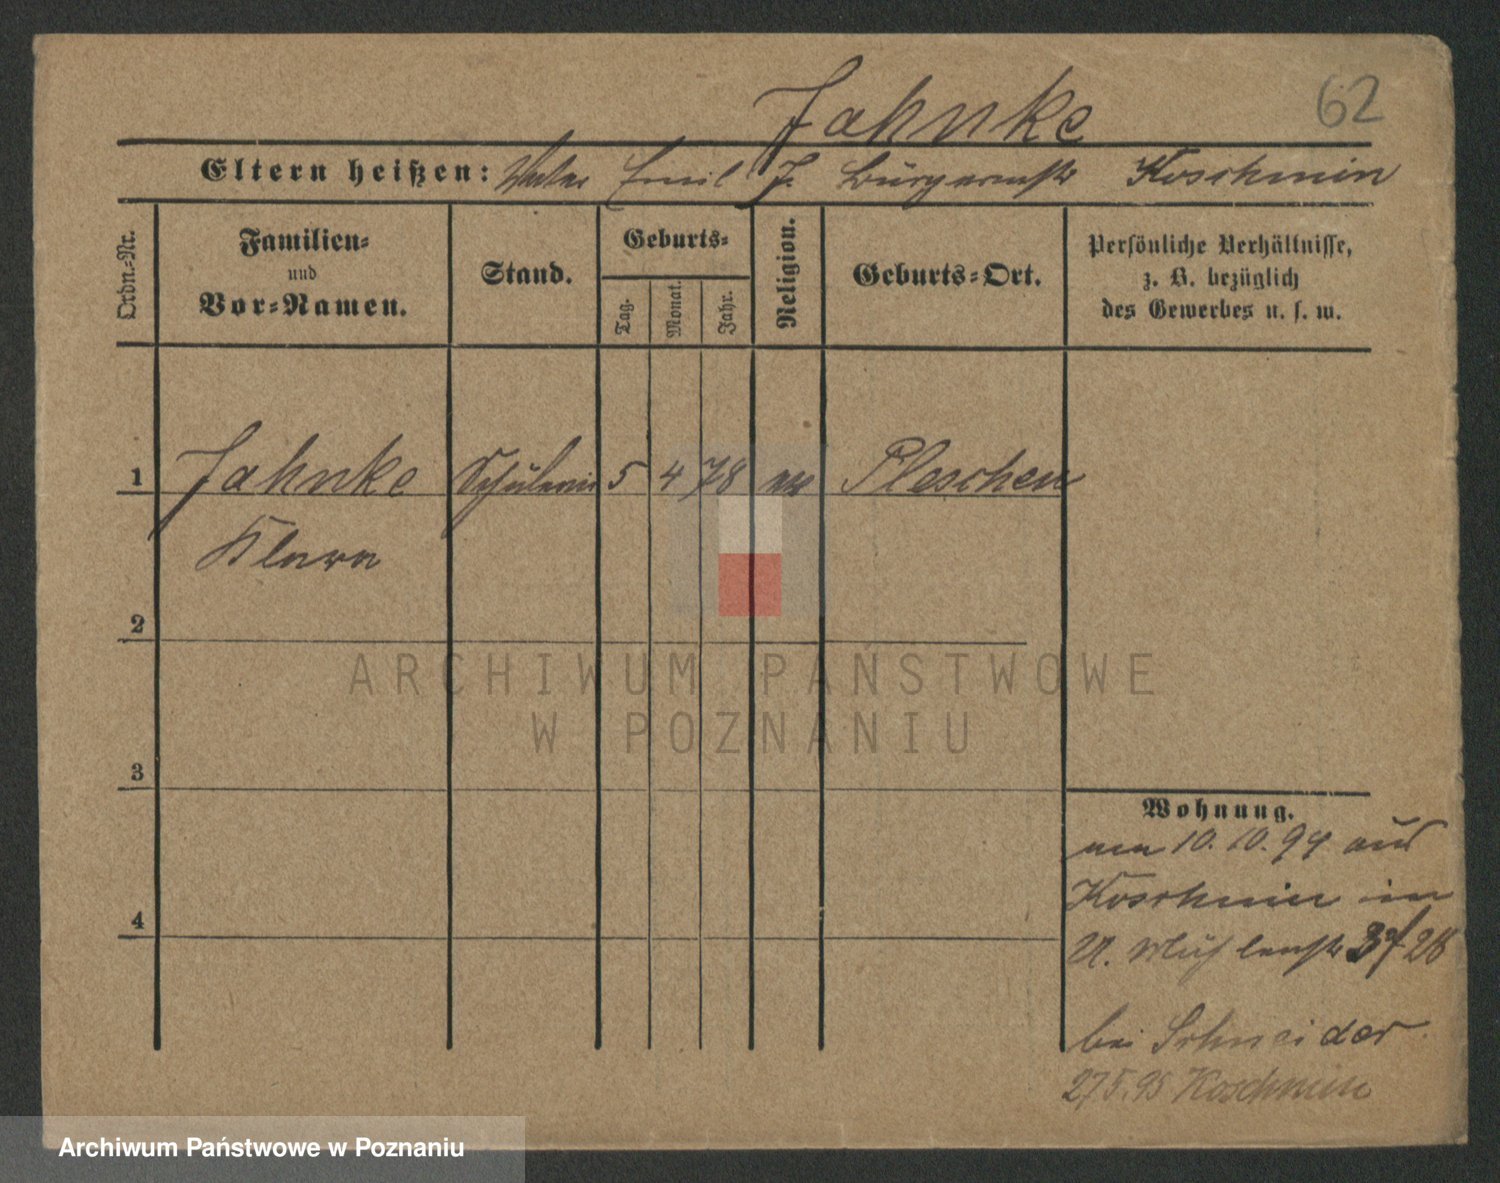 Jahnke 62
Eltern heißen: Vater Emil J. Bürgermstr Koschmin
Ordn.-Nr.
Familien- und Vor-Namen.
Stand.
Geburts-
Tag.
Monat.
Jahr.
Religion.
Geburts-Ort.
Persönliche Verhältnisse,
z. B. bezüglich
des Gewerbes u. s. w.
1 Jahnke Schülerin 5 4 78 ev Pleschen
Klara
2
3
4
Wohnung.
am 10.10.94 aus
Koschmin in
U. Mühlenstr 28
bei Schneider
27.5.95 Koschmin
ARCHIWUM PAŃSTWOWE
W POZNANIU
Archiwum Państwowe w Poznaniu